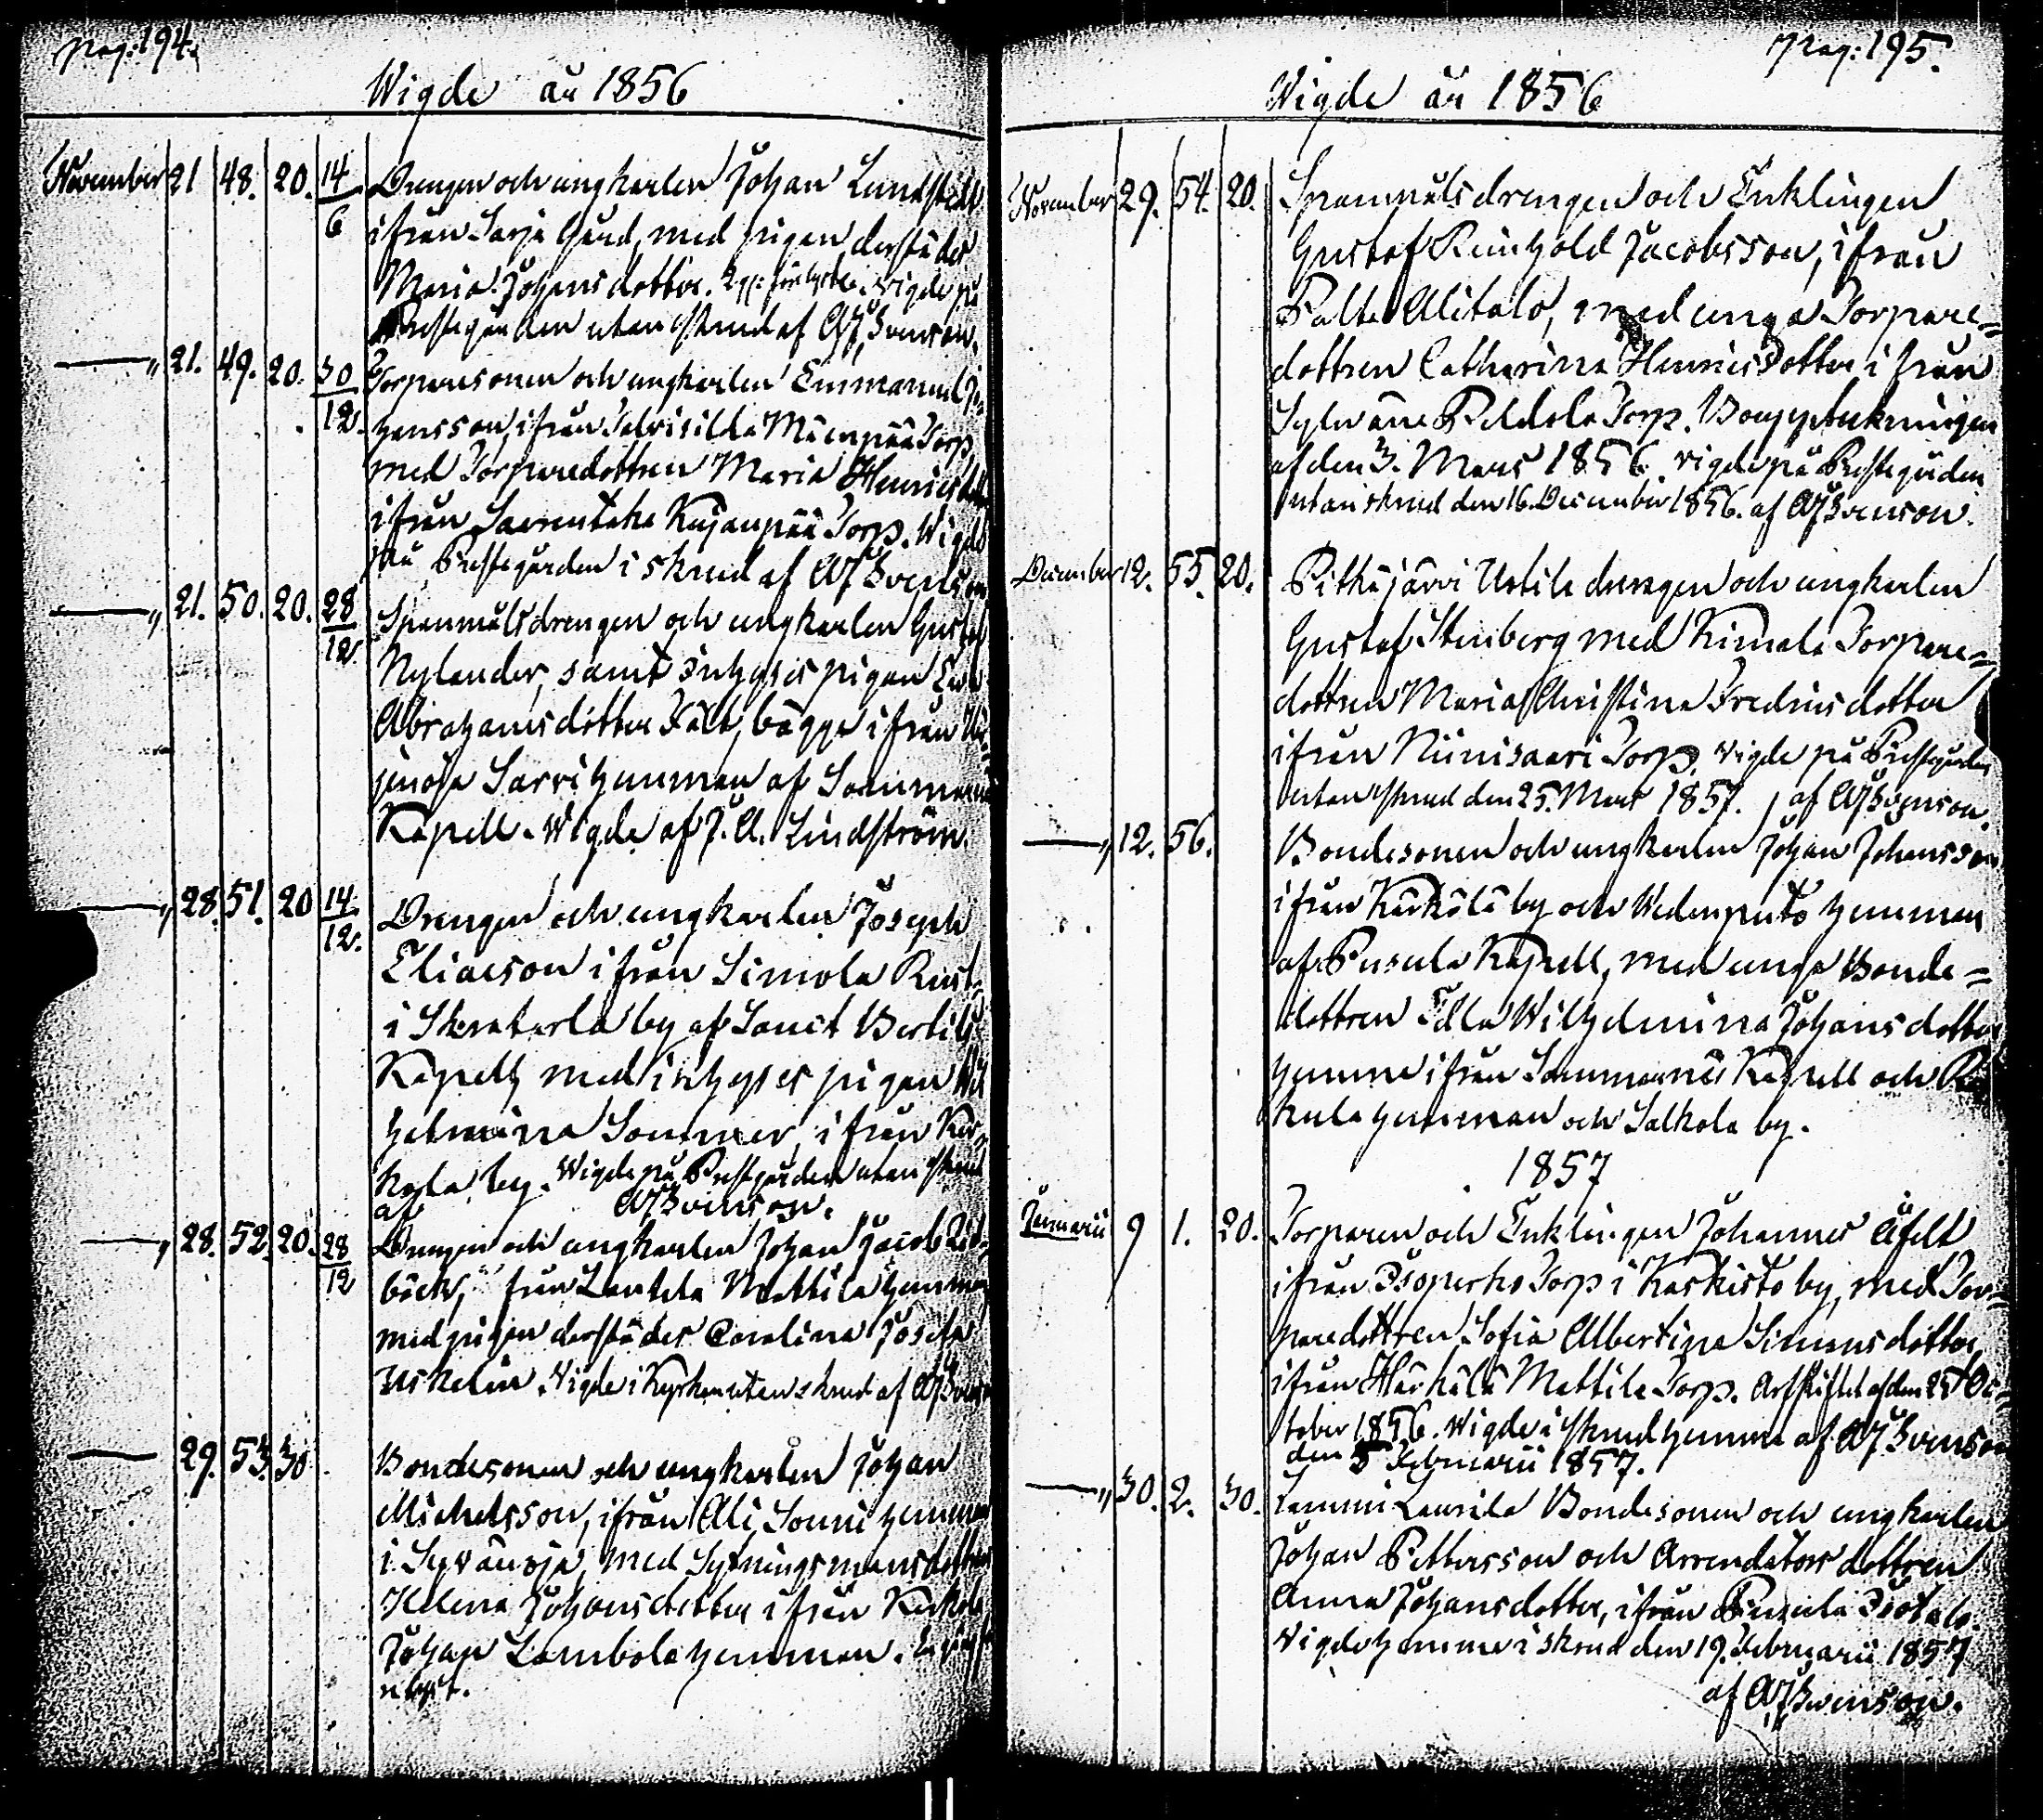 Pag: 194.
Wigde år 1856
November 21 48. 20. 14/6 Drengen och ungkarlen Johan Lundstedt
ifrån Sarja Gård, med pigan derstädes
Maria Johansdotter. Wigde på
Prestegården utan skrud af AJ Svenson.
—„ 21. 49. 20. 30/12. Torparesonen och ungkarlen Emmanuel Jo-
hansson, ifrån Mäenpää Torp,
med Torparedottren Maria Henricsdotter
ifrån Kujanpää Torp. Wigde
på Prestegården i skrud af AJ Svenson
—„ 21. 50. 20. 28/12. Spanmålsdrengen och ungkarlen Gustaf
Nylander, samt inhyses pigan
Abrahamsdotter Fält, bägge ifrån
Sarvi hemman af Sammatti
Kapell. Wigde af J. A. Lindström.
—„ 28. 51. 20 14/12. Drengen och ungkarlen Joseph
Eliaeson ifrån Simola Rust.
i Skraterla by af Sanct Bertils
Kapell, med inhyses pigan Wil
helmina Sommer, ifrån Kär-
köla by. Wigde på Prestgården utan skrud
af AJ Svenson.
—„ 28. 52. 20. 28/12 Drengen och ungkarlen Johan Jacob
bäck, från Lautela Mattila hemman
med pigan derstädes Carolina Josefa
Uskelin. Wigde i Kyrkan utan skrud af AJ Svenson
— 29. 53. 30 Bondesonen och ungkarlen Johan
Michelsson, ifrån Ali Sonni hemman
i Syvänoja, med Sytningsmansdottren
Helena Johansdotter ifrån Kärkölä
Johan Lambola hemman.
Pag: 195.
Wigde år 1856
November 29. 54. 20. Spanmålsdrengen och Enklingen
Gustaf Reinhold Jacobsson, ifrån
Palta Alitalo, med unga Torpare-
dottren Catharina Henricsdotter ifrån
Peldola Torp. Bouppteckningen
af den 3. Mars 1856. vigde på Prestegården
utan skrud den 16. December 1856. af AJ Svenson.
December 12. 55. 20. Pitkäjärvi Uotila drengen och ungkarlen
Gustaf Stenberg med Kimala Torpare-
dottren Maria Christina Fredricsdotter
ifrån Niinisaari Torp. Wigde på Prestegården
utan skrud den 25. Mars 1857. af AJ Svenson.
—„ 12. 56. Bondesonen och ungkarlen Johan Johansson
ifrån Kärkölä by och Wedenputo hemman
af Pusula Kapell, med unga Bonde-
dottren Edla Wilhelmina Johansdotter
hemma ifrån Sammatti Kapell och
kula hemman och Salkola by.
1857
Januarii 9 1. 20. Torparen och Enklingen Johannes Åfelt
ifrån Isoperho Torp i Kaskisto by, med Tor-
paredottren Sofia Albertina Simonsdotter
ifrån Härkälä Mattila Torp. Arfskiftet af den 25 Oc-
tober 1856. Wigde i skrud hemma af AJ Svenson
den 5 Februarii 1857.
—„ 30. 2. 30. Tammi Laurila Bondesonen och ungkarlen
Johan Pettersson och Arrendators dottren
Anna Johansdotter, ifrån Pusula Isotalo.
Wigde hemma i skrud den 19. Februarii 1857
af AJ Svenson.